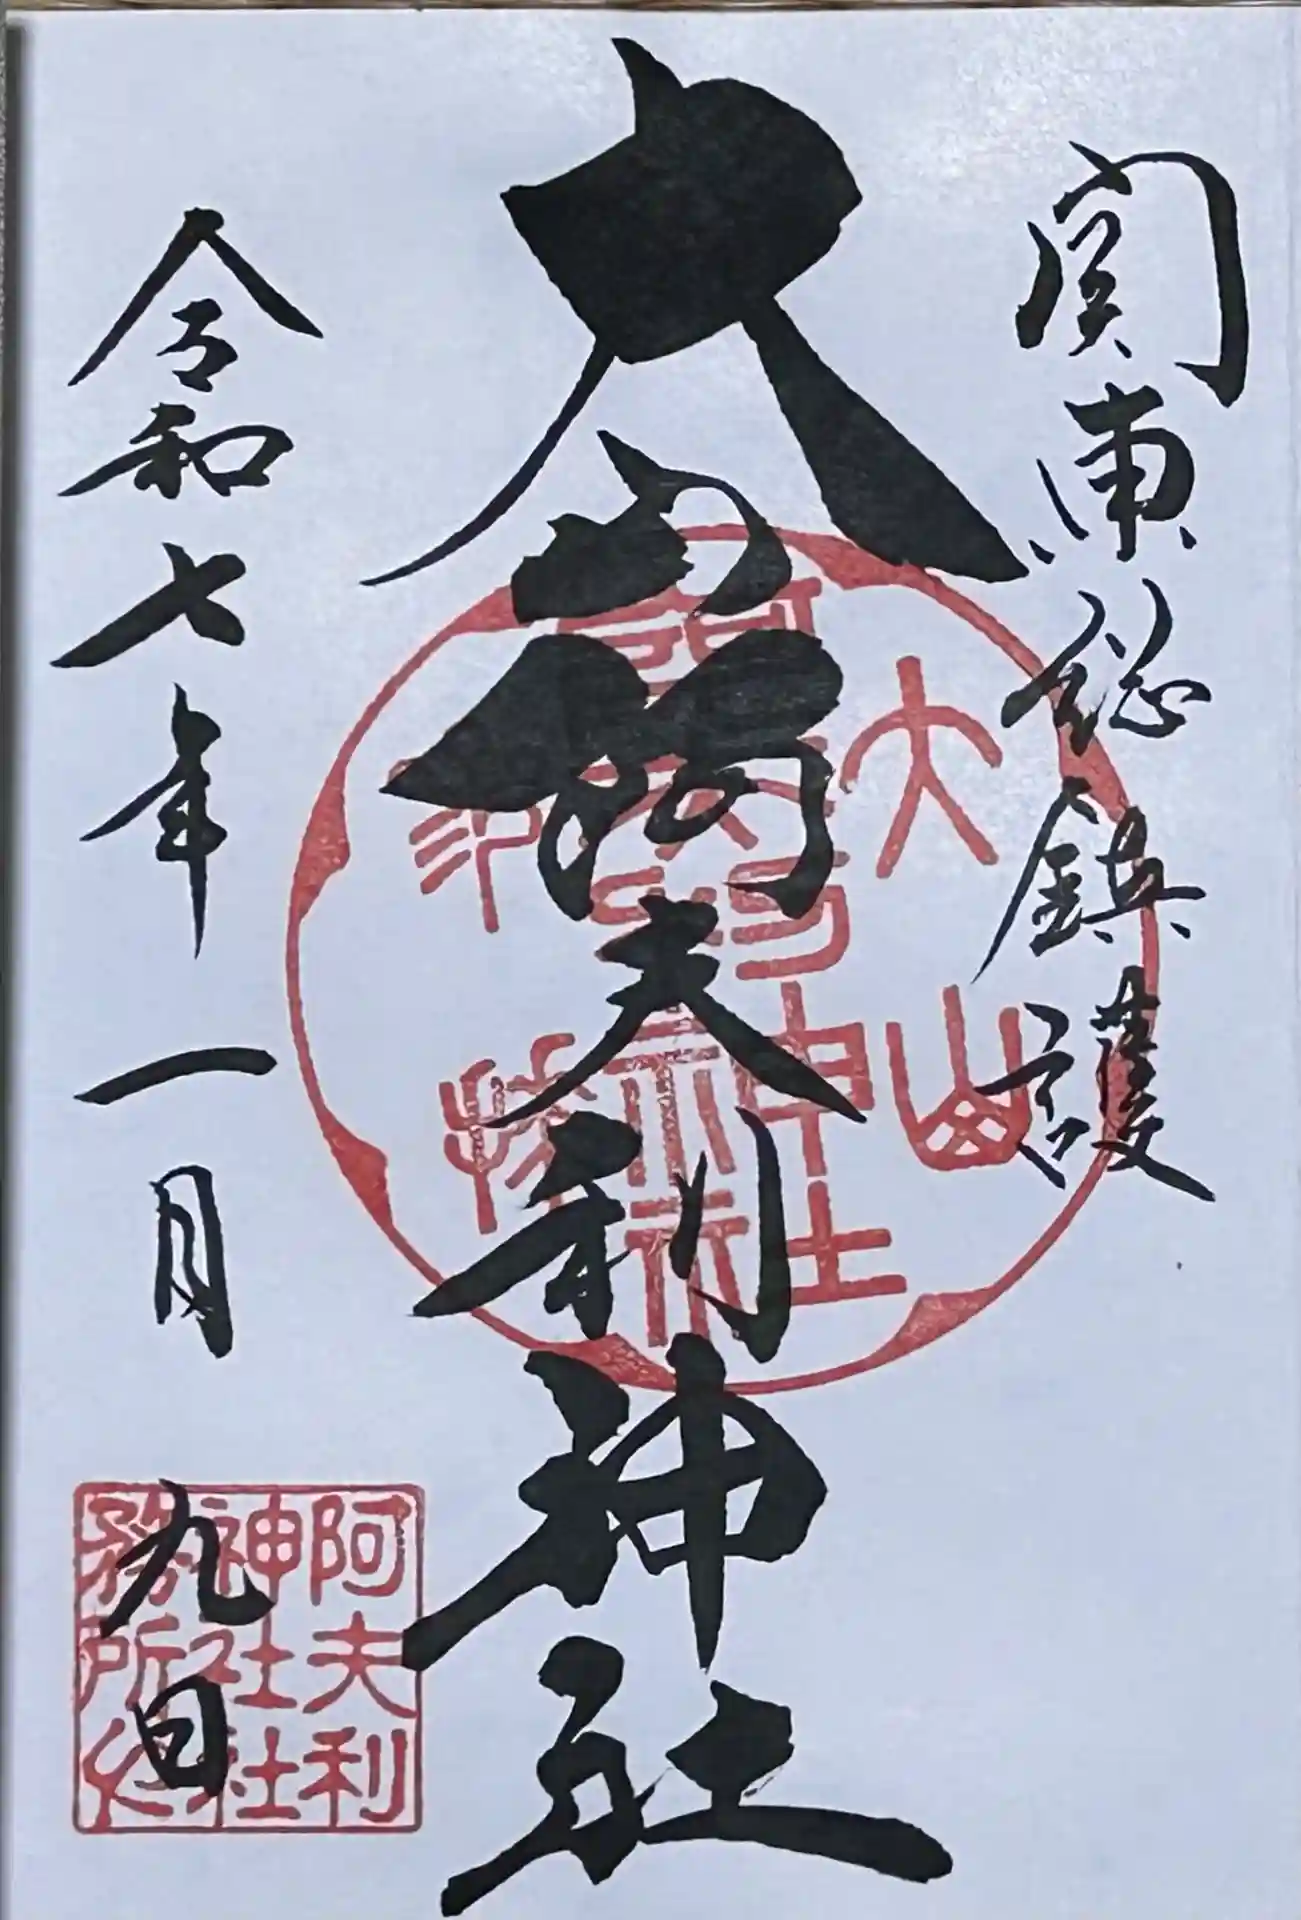 関東総鎮護
大山阿夫利神社
令和七年一月九日
阿夫利
神社社
務所之印